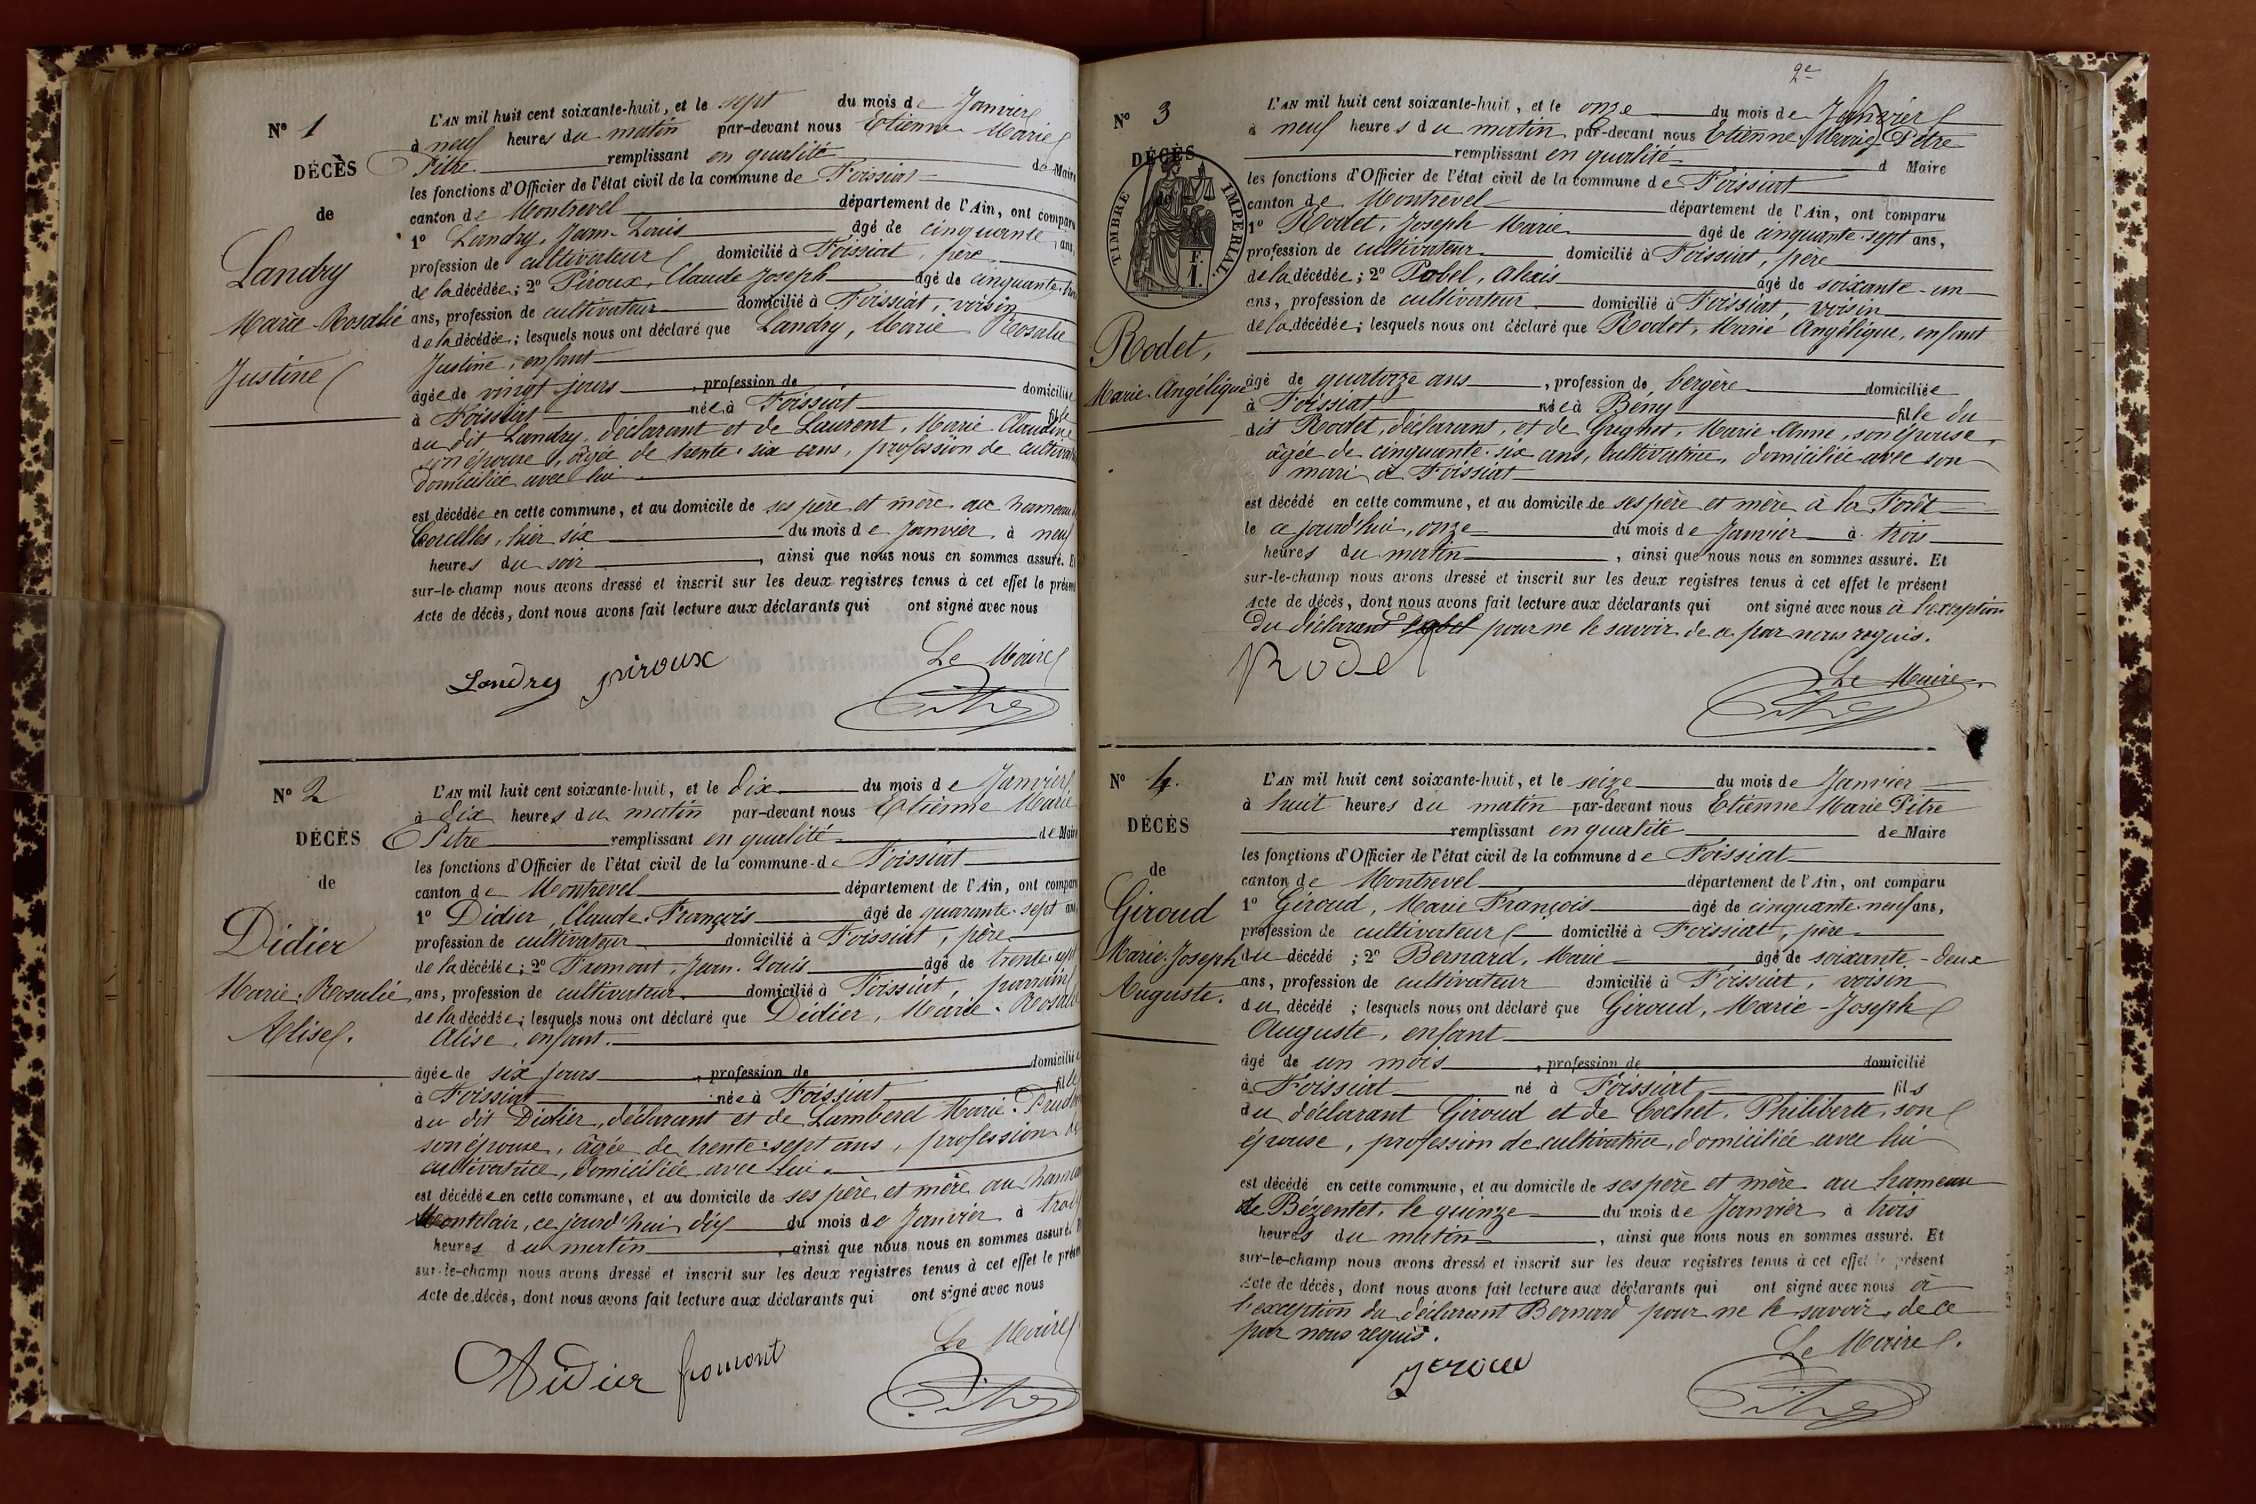 N° 1
DÉCÈS
de
Landry
Marie-Rosalie
Justine
L'AN mil huit cent soixante-huit, et le sept du mois de Janvier
à neuf heures du matin par-devant nous Etienne Marie
Pitre remplissant en qualité de Maire
les fonctions d'Officier de l'état civil de la commune de Foissiat
canton de Montrevel département de l'Ain, ont comparu
1° Landry, Jean-Louis âgé de cinquante ans,
profession de cultivateur domicilié à Foissiat, père
de la décédée; 2° Péroux, Claude Joseph âgé de cinquante
ans, profession de cultivateur domicilié à Foissiat, voisin
de la décédée; lesquels nous ont déclaré que Landry, Marie Rosalie
Justine, enfant
âgée de vingt jours, profession de domiciliée
à Foissiat née à Foissiat fille
du dit Landry, déclarant et de Laurent, Marie Claudine
son épouse, âgée de trente-six ans, profession de
domiciliée avec lui
est décédée en cette commune, et au domicile de ses père et mère au hameau
Corcelles, hier six du mois de Janvier à neuf
heures du soir, ainsi que nous nous en sommes assuré. Et
sur-le-champ nous avons dressé et inscrit sur les deux registres tenus à cet effet le présent
Acte de décès, dont nous avons fait lecture aux déclarants qui ont signé avec nous
Landry piroux Le Maire
Pitre
N° 2
DÉCÈS
de
Didier
Marie-Rosalie
Alise.
L'AN mil huit cent soixante-huit, et le dix du mois de Janvier
à dix heures du matin par-devant nous Etienne Marie
Pitre remplissant en qualité de Maire
les fonctions d'Officier de l'état civil de la commune de Foissiat
canton de Montrevel département de l'Ain, ont comparu
1° Didier, Claude-François âgé de quarante-sept ans
profession de cultivateur domicilié à Foissiat, père
de la décédée; 2° Fromont, Jean-Louis âgé de trente-sept
ans, profession de cultivateur domicilié à Foissiat, parrain
de la décédée; lesquels nous ont déclaré que Didier, Marie-Rosalie
Alise, enfant.
âgée de six jours, profession de domiciliée
à Foissiat née à Foissiat fille
du dit Didier, déclarant et de Lamberet Marie
son épouse, âgée de trente-sept ans, profession de
cultivatrice, domiciliée avec lui.
est décédée en cette commune, et au domicile de ses père et mère au hameau
Montclair, ce jourd'hui dix du mois de Janvier à trois
heures du matin, ainsi que nous nous en sommes assuré. Et
sur-le-champ nous avons dressé et inscrit sur les deux registres tenus à cet effet le présent
Acte de décès, dont nous avons fait lecture aux déclarants qui ont signé avec nous
Didier fromont Le Maire
Pitre
2e
N° 3
DÉCÈS
TIMBRE IMPERIAL.
F.
1.
Rodet,
Marie-Angélique
L'AN mil huit cent soixante-huit, et le onze du mois de Janvier
à neuf heures du matin par-devant nous Etienne Marie Pitre
remplissant en qualité d Maire
les fonctions d'Officier de l'état civil de la commune de Foissiat
canton de Montrevel département de l'Ain, ont comparu
1° Rodet, Joseph Marie âgé de cinquante-sept ans,
profession de cultivateur domicilié à Foissiat, père
de la décédée; 2° Pobel, Alexis âgé de soixante-un
ans, profession de cultivateur domicilié à Foissiat, voisin
de la décédée; lesquels nous ont déclaré que Rodet, Marie Angélique, enfant
âgé de quatorze ans, profession de bergère domiciliée
à Foissiat née à Bény fille du
dit Rodet, déclarant, et de Marie-Anne, son épouse,
âgée de cinquante-six ans, cultivatrice, domiciliée avec son
mari à Foissiat
est décédé en cette commune, et au domicile de ses père et mère à la Forêt
le ce jourd'hui, onze du mois de Janvier à trois
heures du matin, ainsi que nous nous en sommes assuré. Et
sur-le-champ nous avons dressé et inscrit sur les deux registres tenus à cet effet le présent
Acte de décès, dont nous avons fait lecture aux déclarants qui ont signé avec nous à l'exception
du déclarant pobel pour ne le savoir de ce par nous requis.
Rodet Le Maire.
Pitre
N° 4.
DÉCÈS
de
Giroud
Marie-Joseph
Auguste.
L'AN mil huit cent soixante-huit, et le seize du mois de Janvier
à huit heures du matin par-devant nous Etienne Marie Pitre
remplissant en qualité de Maire
les fonctions d'Officier de l'état civil de la commune de Foissiat
canton de Montrevel département de l'Ain, ont comparu
1° Giroud, Marie François âgé de cinquante-neuf ans,
profession de cultivateur domicilié à Foissiat, père
du décédé; 2° Bernard, Marie âgé de soixante-deux
ans, profession de cultivateur domicilié à Foissiat, voisin
du décédé; lesquels nous ont déclaré que Giroud, Marie-Joseph
Auguste, enfant
âgé de un mois, profession de domicilié
à Foissiat né à Foissiat fils
du déclarant Giroud et de Cochet, Philiberte, son
épouse, profession de cultivatrice, domiciliée avec lui
est décédé en cette commune, et au domicile de ses père et mère au hameau
de Bézentet, le quinze du mois de Janvier à trois
heures du matin, ainsi que nous nous en sommes assuré. Et
sur-le-champ nous avons dressé et inscrit sur les deux registres tenus à cet effet le présent
Acte de décès, dont nous avons fait lecture aux déclarants qui ont signé avec nous à
l'exception du déclarant Bernard pour ne le savoir, de ce
par nous requis.
Le Maire.
Pitre